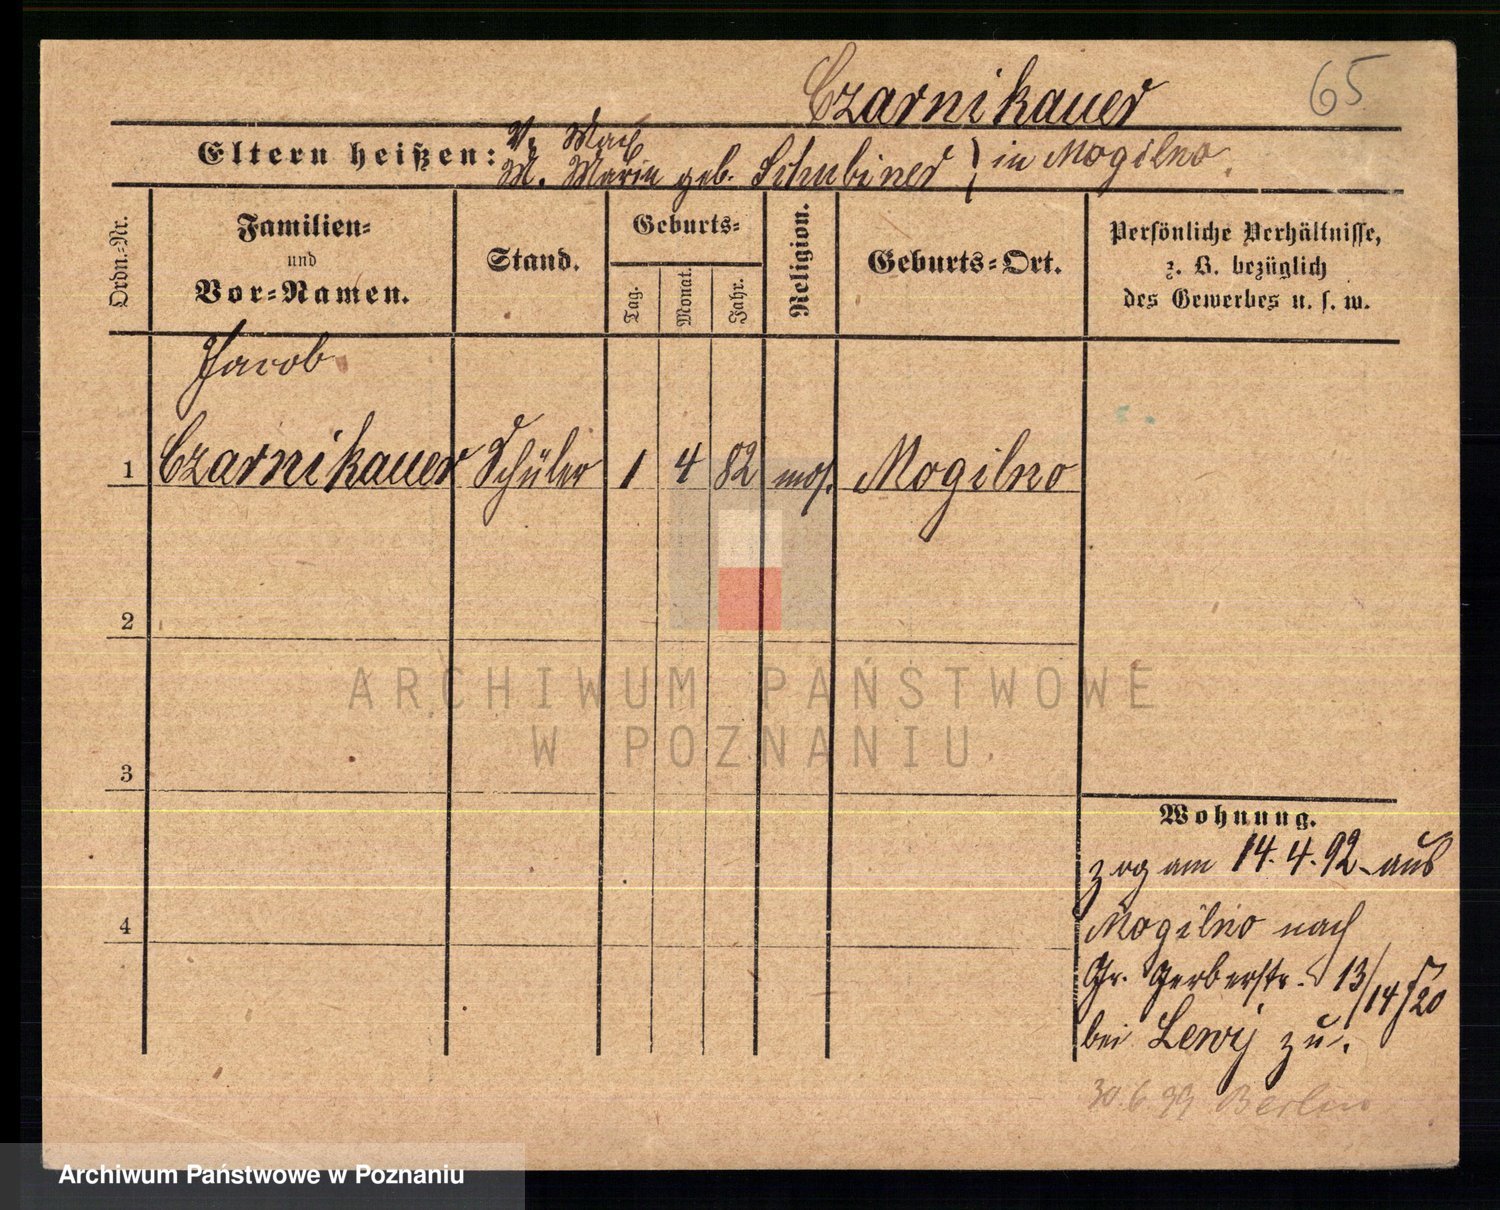 Czarnikauer
65
V. Max
Eltern heißen:
M. Marie geb. Schubiner } in Mogilno
Ordn.-Nr.
Familien-
und
Vor-Namen.
Stand.
Geburts-
Tag.
Monat.
Jahr.
Religion.
Geburts-Ort.
Persönliche Verhältnisse,
z. B. bezüglich
des Gewerbes u. s. w.
Jacob
1 Czarnikauer Schüler 1 4 82 mos. Mogilno
2
3
4
Wohnung.
zog am 14.4.92 aus
Mogilno nach
Gr. Gerberstr. 13/14
bei Lewy zu.
30.6.99 Berlin
ARCHIWUM PAŃSTWOWE
W POZNANIU
Archiwum Państwowe w Poznaniu